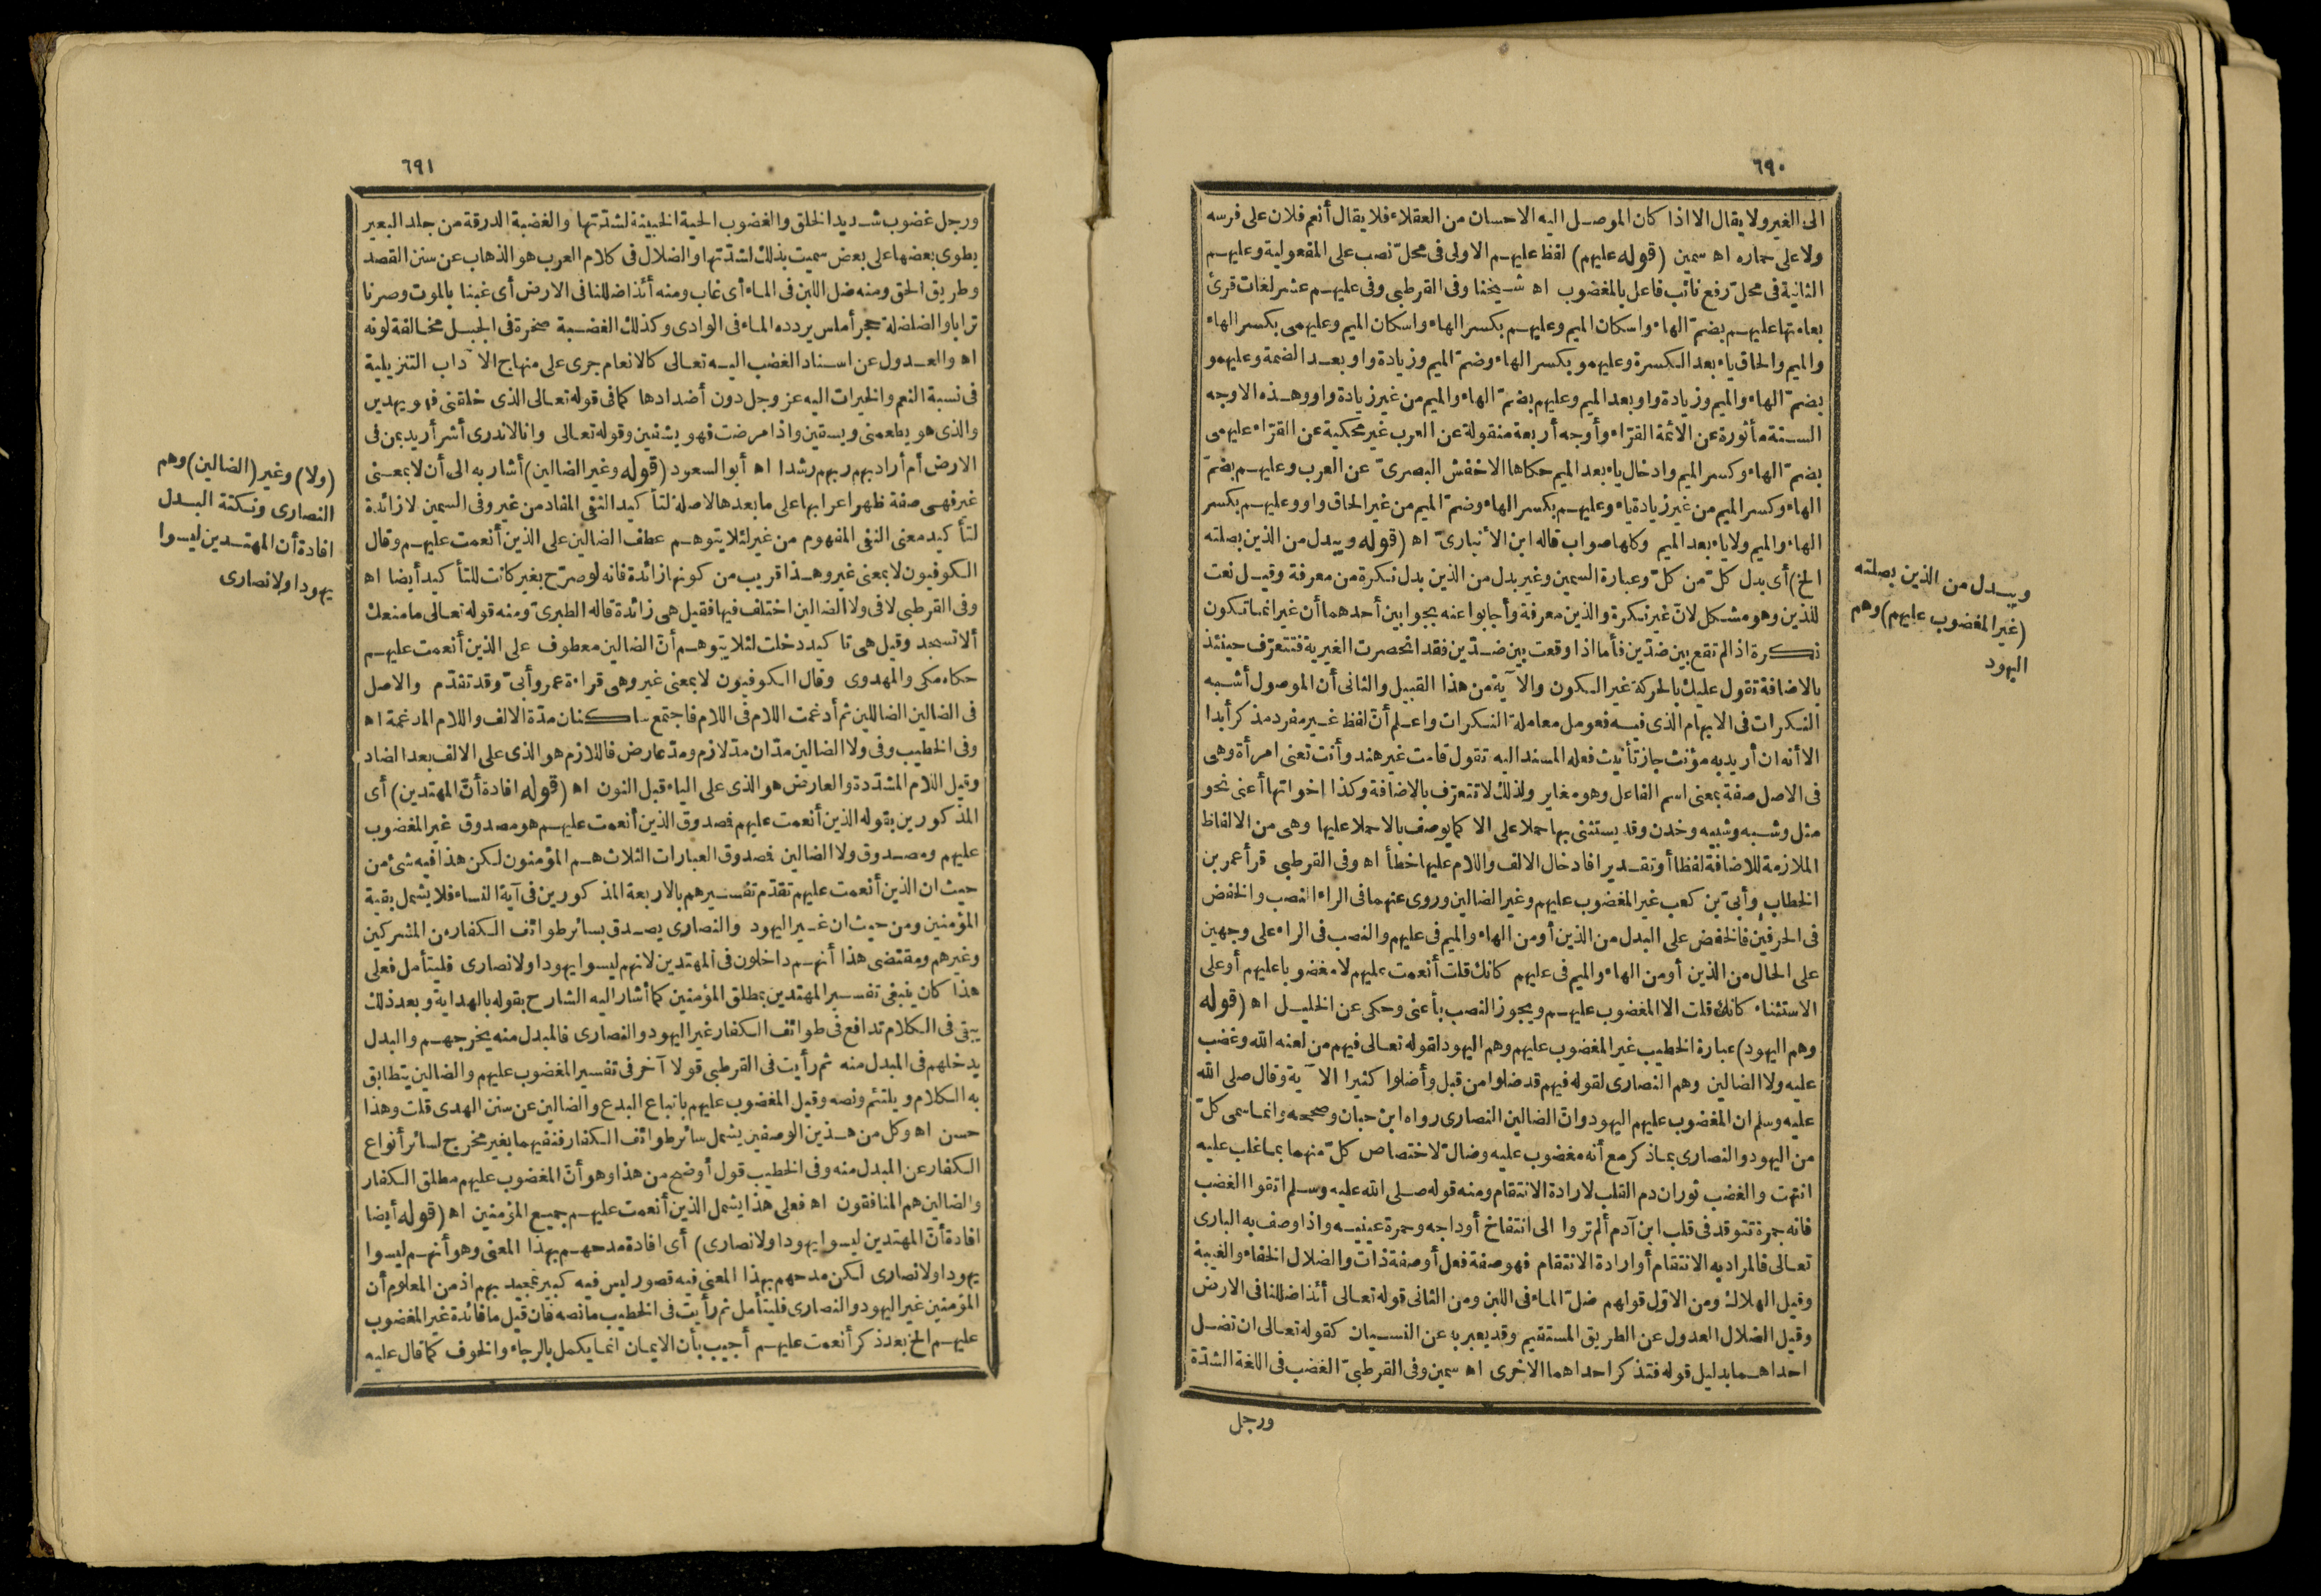 ٦٩٠
الى الغير ولا يقال الا اذا كان الموصل اليه الاحسان من العقلاء فلا يقال أنعم فلان على فرسه
ولا على حماره اه سمين (قوله عليهم) لفظ عليهم الاولى فى محلّ نصب على المفعولية وعليهم
الثانية فى محلّ رفع نائب فاعل بالمغضوب اه شيخنا وفى القرطبى وفى عليهم عشر لغات قرئ
بعامتها عليهم بضمّ الهاء واسكان الميم وعليهم بكسر الهاء واسكان الميم وعليهمى بكسر الهاء
والميم والحاق ياء بعد الكسرة وعليهمو بكسر الهاء وضمّ الميم وزيادة واو بعد الضمة وعليهمو
بضمّ الهاء والميم وزيادة واو بعد الميم وعليهم بضمّ الهاء والميم من غير زيادة واو وهذه الاوجه
الستة مأثورة عن الائمة القرّاء وأوجه أربعة منقولة عن العرب غير محكية عن القرّاء عليهمى
بضمّ الهاء وكسر الميم وادخال ياء بعد الميم حكاها الاخفش البصرىّ عن العرب وعليهم بضمّ
الهاء وكسر الميم من غير زيادة ياء وعليهم بكسر الهاء وضمّ الميم من غير الحاق واو وعليهم بكسر
الهاء والميم ولا ياء بعد الميم وكلها صواب قاله ابن الأنبارىّ اه (قوله ويبدل من الذين بصلته
الخ) أى بدل كلّ من كلّ وعبارة السمين وغير بدل من الذين بدل نكرة من معرفة وقيل نعت
للذين وهو مشكل لانّ غير نكرة والذين معرفة وأجابوا عنه بجوابين أحدهما أن غير انما تكون
نكرة اذا لم تقع بين ضدّين فأما اذا وقعت بين ضدّين فقد انحصرت الغيرية فتتعرّف حينئذ
بالاضافة تقول عليك بالحركة غير السكون والآية من هذا القبيل والثانى أن الموصول أشبه
النكرات فى الابهام الذى فيه فعومل معاملة النكرات واعلم أنّ لفظ غير مفرد مذكر أبدا
الا أنه ان أريد به مؤنث جاز تأنيث فعله المسند اليه تقول قامت غير هند وأنت تعنى امرأة وهى
فى الاصل صفة بمعنى اسم الفاعل وهو مغاير ولذلك لا تتعرّف بالاضافة وكذا اخواتها أعنى نحو
مثل وشبه وشبيه وخدن وقد يستثنى بها حملا على الا كما يوصف بالا حملا عليها وهى من الالفاظ
الملازمة للاضافة لفظا أو تقديرا فادخال الالف واللام عليها خطأ اه وفى القرطبى قرأ عمر بن
الخطاب وأبىّ بن كعب غير المغضوب عليهم وغير الضالين وروى عنهما فى الراء النصب والخفض
فى الحرفين فالخفض على البدل من الذين أو من الهاء والميم فى عليهم والنصب فى الراء على وجهين
على الحال من الذين أو من الهاء والميم فى عليهم كانك قلت أنعمت عليهم لا مغضوبا عليهم أو على
الاستثناء كانك قلت الا المغضوب عليهم ويجوز النصب بأعنى وحكى عن الخليل اه (قوله
وهم اليهود) عبارة الخطيب غير المغضوب عليهم وهم اليهود لقوله تعالى فيهم من لعنه الله وغضب
عليه ولا الضالين وهم النصارى لقوله فيهم قد ضلوا من قبل وأضلوا كثيرا الآية وقال صلى الله
عليه وسلم ان المغضوب عليهم اليهود وانّ الضالين النصارى رواه ابن حبان وصححه وانما سمى كلّ
من اليهود والنصارى بما ذكر مع أنه مغضوب عليه وضالّ لاختصاص كلّ منهما بما غلب عليه
انتهت والغضب ثوران دم القلب لارادة الانتقام ومنه قوله صلى الله عليه وسلم اتقوا الغضب
فانه جمرة تتوقد فى قلب ابن آدم ألم تروا الى انتفاخ أوداجه وحمرة عينيه واذا وصف به البارى
تعالى فالمراد به الانتقام أو ارادة الانتقام فهو صفة فعل أو صفة ذات والضلال الخفاء والغيبة
وقيل الهلاك ومن الاوّل قولهم ضلّ الماء فى اللبن ومن الثانى قوله تعالى أئذا ضللنا فى الارض
وقيل الضلال العدول عن الطريق المستقيم وقد يعبر به عن النسيان كقوله تعالى ان تضل
احداهما بدليل قوله فتذكر احداهما الاخرى اه سمين وفى القرطبىّ الغضب فى اللغة الشدّة
ورجل
ويبدل من الذين بصلته
(غير المغضوب عليهم) وهم
اليهود
٦٩١
ورجل غضوب شديد الخلق والغضوب الحية الخبيثة لشدّتها والغضبة الدرقة من جلد البعير
يطوى بعضها على بعض سميت بذلك لشدّتها والضلال فى كلام العرب هو الذهاب عن سنن القصد
وطريق الحق ومنه ضل اللبن فى الماء أى غاب ومنه أئذا ضللنا فى الارض أى غبنا بالموت وصرنا
ترابا والضلضلة حجر أملس يردده الماء فى الوادى وكذلك الغضبة صخرة فى الجبل مخالفة لونه
اه والعدول عن اسناد الغضب اليه تعالى كالانعام جرى على منهاج الآداب التنزيلية
فى نسبة النعم والخيرات اليه عز وجل دون أضدادها كما فى قوله تعالى الذى خلقنى فهو يهدين
والذى هو يطعمنى ويسقين واذا مرضت فهو يشفين وقوله تعالى وانا لا ندرى أشر أريد بمن فى
الارض أم أراد بهم ربهم رشدا اه أبو السعود (قوله وغير الضالين) أشار به الى أن لا بمعنى
غير فهى صفة ظهر اعرابها على ما بعدها لا صلة لتأكيد النفى المفاد من غير وفى السمين لا زائدة
لتأكيد معنى النفى المفهوم من غير لئلا يتوهم عطف الضالين على الذين أنعمت عليهم وقال
الكوفيون لا بمعنى غير وهذا قريب من كونها زائدة فانه لو صرّح بغير كانت للتأكيد أيضا اه
وفى القرطبى لا فى ولا الضالين اختلف فيها فقيل هى زائدة قاله الطبرىّ ومنه قوله تعالى ما منعك
ألا تسجد وقيل هى تاكيد دخلت لئلا يتوهم أنّ الضالين معطوف على الذين أنعمت عليهم
حكاه مكى والمهدوى وقال الكوفيون لا بمعنى غير وهى قراءة عمر وأبىّ وقد تقدّم والاصل
فى الضالين الضاللين ثم أدغمت اللام فى اللام فاجتمع ساكنان مدّة الالف واللام المدغمة اه
وفى الخطيب وفى ولا الضالين مدّان مدّ لازم ومدّ عارض فاللازم هو الذى على الالف بعد الضاد
وقبل اللام المشدّدة والعارض هو الذى على الياء قبل النون اه (قوله افادة أنّ المهتدين) أى
المذكورين بقوله الذين أنعمت عليهم فصدوق الذين أنعمت عليهم هو مصدوق غير المغضوب
عليهم ومصدوق ولا الضالين فصدوق العبارات الثلاث هم المؤمنون لكن هذا فيه شئ من
حيث ان الذين أنعمت عليهم تقدّم تفسيرهم بالاربعة المذكورين فى آية النساء فلا يشمل بقية
المؤمنين ومن حيث ان غير اليهود والنصارى يصدق بسائر طوائف الكفار من المشركين
وغيرهم ومقتضى هذا أنهم داخلون فى المهتدين لانهم ليسوا يهودا ولا نصارى فليتأمل فعلى
هذا كان ينبغى تفسير المهتدين بمطلق المؤمنين كما أشار اليه الشارح بقوله بالهداية وبعد ذلك
يبقى فى الكلام تدافع فى طوائف الكفار غير اليهود والنصارى فالمبدل منه يخرجهم والبدل
يدخلهم فى المبدل منه ثم رأيت فى القرطبى قولا آخر فى تفسير المغضوب عليهم والضالين يتطابق
به الكلام ويلتئم ونصه وقيل المغضوب عليهم باتباع البدع والضالين عن سنن الهدى قلت وهذا
حسن اه وكل من هذين الوصفين يشمل سائر طوائف الكفار فنفيهما بغير مخرج لسائر أنواع
الكفار عن المبدل منه وفى الخطيب قول أوضح من هذا وهو أنّ المغضوب عليهم مطلق الكفار
والضالين هم المنافقون اه فعلى هذا يشمل الذين أنعمت عليهم جميع المؤمنين اه (قوله أيضا
افادة أنّ المهتدين ليسوا يهودا ولا نصارى) أى افادة مدحهم بهذا المعنى وهو أنهم ليسوا
يهودا ولا نصارى لكن مدحهم بهذا المعنى فيه قصور ليس فيه كبير تمجيد بهم اذ من المعلوم أن
المؤمنين غير اليهود والنصارى فليتأمل ثم رأيت فى الخطيب ما نصه فان قيل ما فائدة غير المغضوب
عليهم الخ بعد ذكر أنعمت عليهم أجيب بأن الايمان انما يكمل بالرجاء والخوف كما قال عليه
(ولا) وغير (الضالين) وهم
النصارى ونكتة البدل
افادة أن المهتدين ليسوا
يهودا ولا نصارى